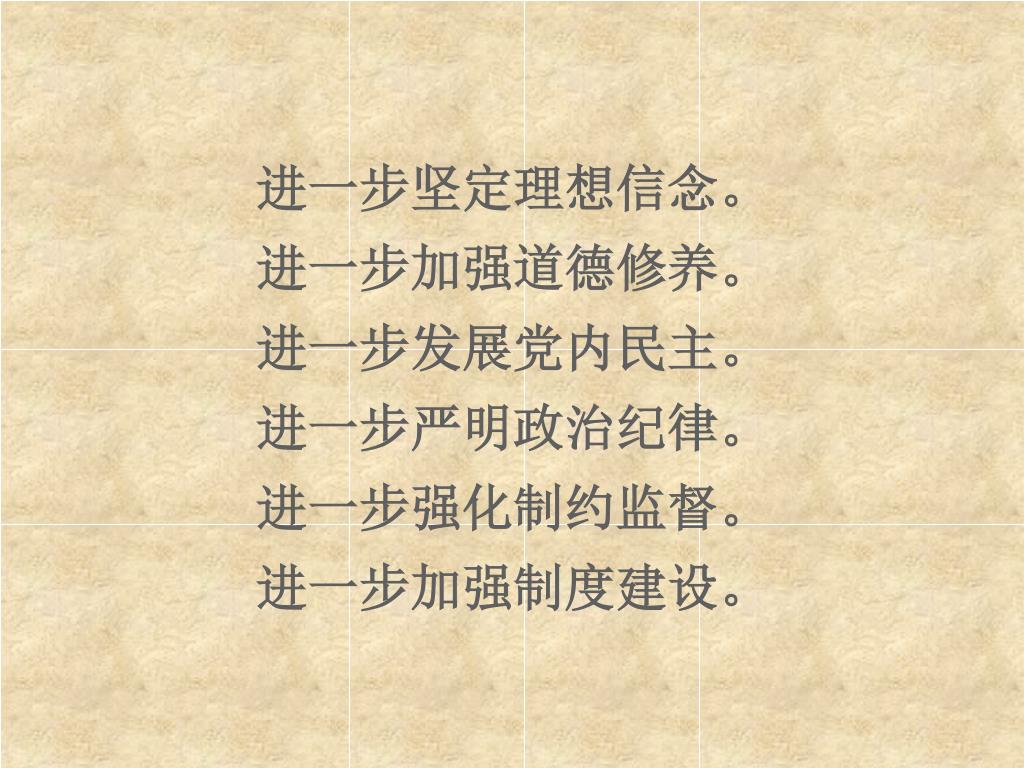 进一步坚定理想信念。
进一步加强道德修养。
进一步发展党内民主。
进一步严明政治纪律。
进一步强化制约监督。
进一步加强制度建设。